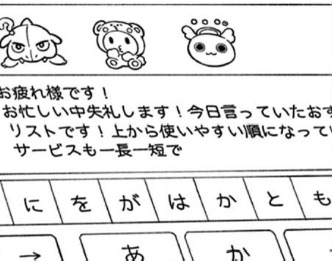 お疲れ様です！
お忙しい中失礼します！今日言っていたおす
リストです！上から使いやすい順になってい
サービスも一長一短で
に を が は か と も
→ あ か